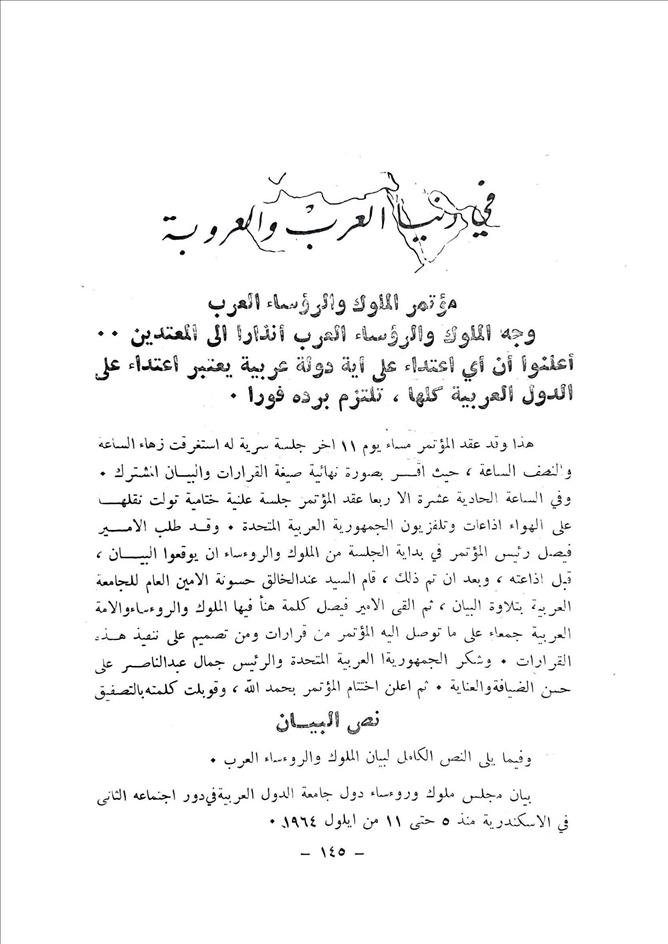 في دنيا العرب والعروبة
مؤتمر الملوك والرؤساء العرب
وجه الملوك والرؤساء العرب أنذارا الى المعتدين ٠٠
أعلنوا أن أي اعتداء على أية دولة عربية يعتبر اعتداء على
الدول العربية كلها ، تلتزم برده فورا ٠
هذا وقد عقد المؤتمر مساء يوم ١١ اخر جلسة سرية له استغرقت زهاء الساعة
والنصف الساعة ، حيث اقر بصورة نهائية صيغة القرارات والبيان المشترك ٠
وفي الساعة الحادية عشرة الا ربعا عقد المؤتمر جلسة علنية ختامية تولت نقلها
على الهواء اذاعات وتلفزيون الجمهورية العربية المتحدة ٠ وقد طلب الامير
فيصل رئيس المؤتمر في بداية الجلسة من الملوك والروءساء ان يوقعوا البيان ،
قبل اذاعته ، وبعد ان تم ذلك ، قام السيد عبدالخالق حسونة الامين العام للجامعة
العربية بتلاوة البيان ، ثم القى الامير فيصل كلمة هنأ فيها الملوك والروءساءوالامة
العربية جمعاء على ما توصل اليه المؤتمر من قرارات ومن تصميم على تنفيذ هذه
القرارات ٠ وشكر الجمهوريةا العربية المتحدة والرئيس جمال عبدالناصر على
حسن الضيافةوالعناية ٠ ثم اعلن اختتام المؤتمر بحمد الله ، وقوبلت كلمته بالتصفيق
نص البيان
وفيما يلى النص الكامل لبيان الملوك والروءساء العرب ٠
بيان مجلس ملوك وروءساء دول جامعة الدول العربية في دور اجتماعه الثانى
في الاسكندرية منذ ٥ حتى ١١ من ايلول ١٩٦٤ ٠
— ١٤٥ —